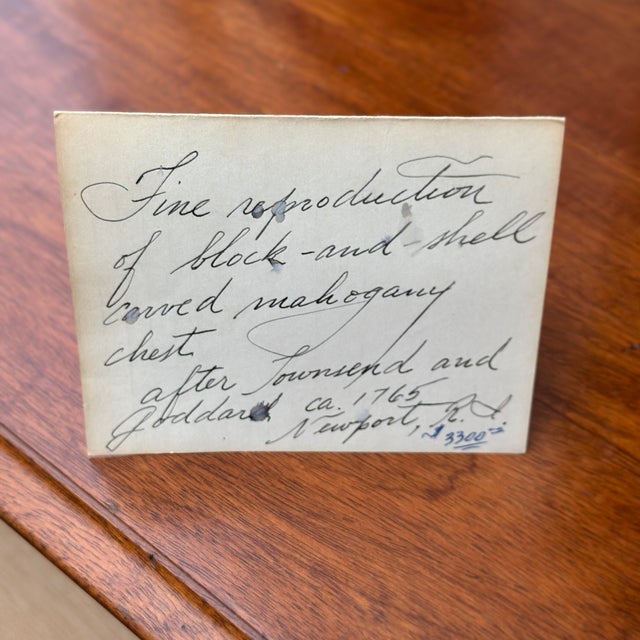 Fine reproduction
of block-and-shell
carved mahogany
chest
after Townsend and
Goddard ca. 1765
Newport, R.I.
$3300=